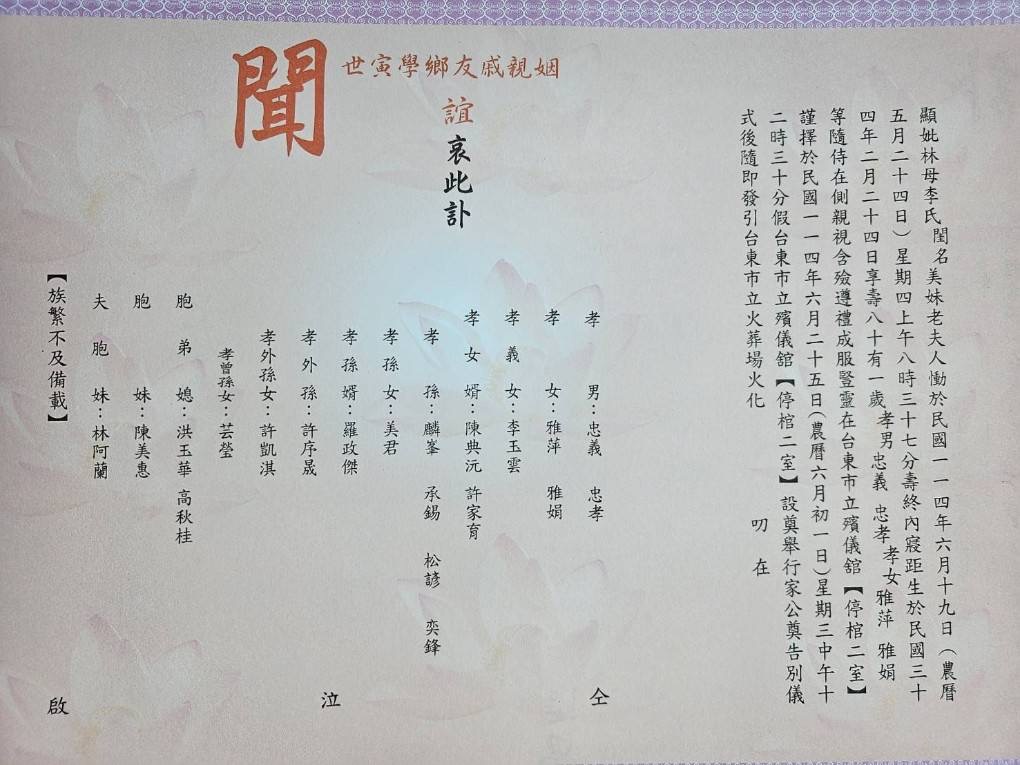 顯妣林母李氏閨名美妹老夫人慟於民國一一四年六月十九日（農曆
五月二十四日）星期四上午八時三十七分壽終內寢距生於民國三十
四年二月二十四日享壽八十有一歲孝男忠義 忠孝孝女雅萍 雅娟
等隨侍在側親視含殮遵禮成服豎靈在台東市立殯儀舘【停棺二室】
謹擇於民國一一四年六月二十五日(農曆六月初一日)星期三中午十
二時三十分假台東市立殯儀舘【停棺二室】設奠舉行家公奠告別儀
式後隨即發引台東市立火葬場火化
叨在
姻親戚友鄉學寅世
誼哀此訃
聞
孝男：忠義 忠孝
孝女：雅萍 雅娟
孝義女：李玉雲
孝女婿：陳典沅 許家育
孝孫：麟峯 承錫 松諺 奕鋒
孝孫女：美君
孝孫婿：羅政傑
孝外孫：許序晟
孝外孫女：許凱淇
孝曾孫女：芸瑩
胞弟媳：洪玉華 高秋桂
胞妹：陳美惠
夫胞妹：林阿蘭
【族繁不及備載】
仝泣啟